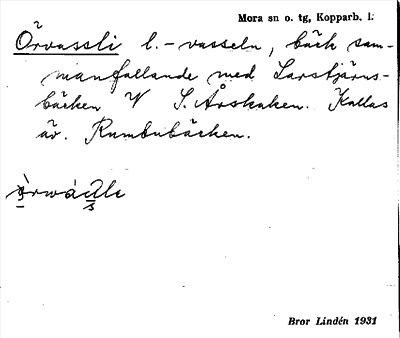 Mora sn o. tg, Kopparb. l.
Örvassli l. -vasseln, bäck sam-
manfallande med Larstjärns-
bäcken V S. Årskaken. Kallas
äv. Rumbubäcken.
Bror Lindén 1931